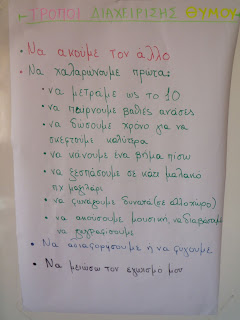 ΤΡΟΠΟΙ ΔΙΑΧΕΙΡΙΣΗΣ ΘΥΜΟΥ
• Να ακούμε τον άλλο
• Να χαλαρώνουμε πρώτα:
• να μετράμε ως το 10
• να παίρνουμε βαθιές ανάσες
• να δώσουμε χρόνο για να
σκεφτούμε καλύτερα
• να κάνουμε ένα βήμα πίσω
• να ξεσπάσουμε σε κάτι μαλακό
πχ μαξιλάρι
• να φωνάξουμε δυνατά (σε άλλο χώρο)
• να ακούσουμε μουσική, να διαβάσουμε
να ζωγραφίσουμε
• Να αδιαφορήσουμε ή να φύγουμε
• Να μειώσω τον εγωισμό μου